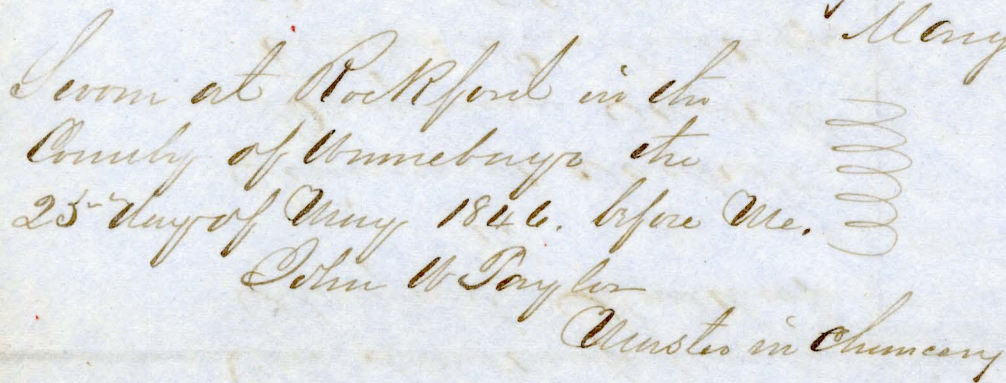 Mary
Sworn at Rockford in the
County of Winnebago the
25th day of May 1846. before Me.
John W Taylor
Master in Chancery